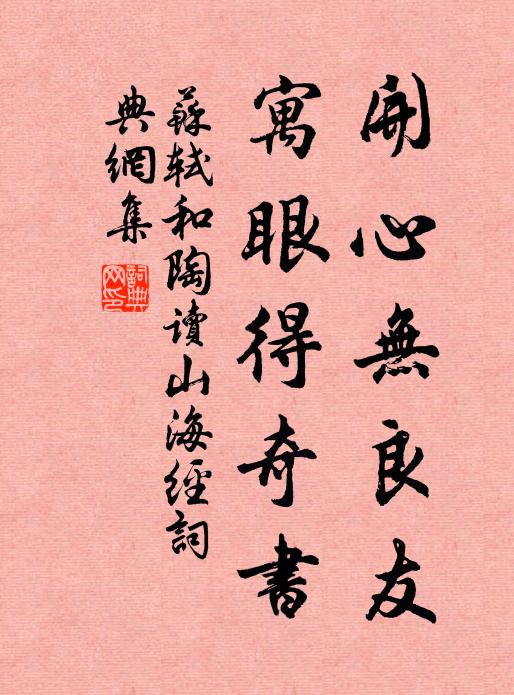 開心無良友
寓眼得奇書
蘇軾和陶讀山海經詞
典網集
詞典
网印